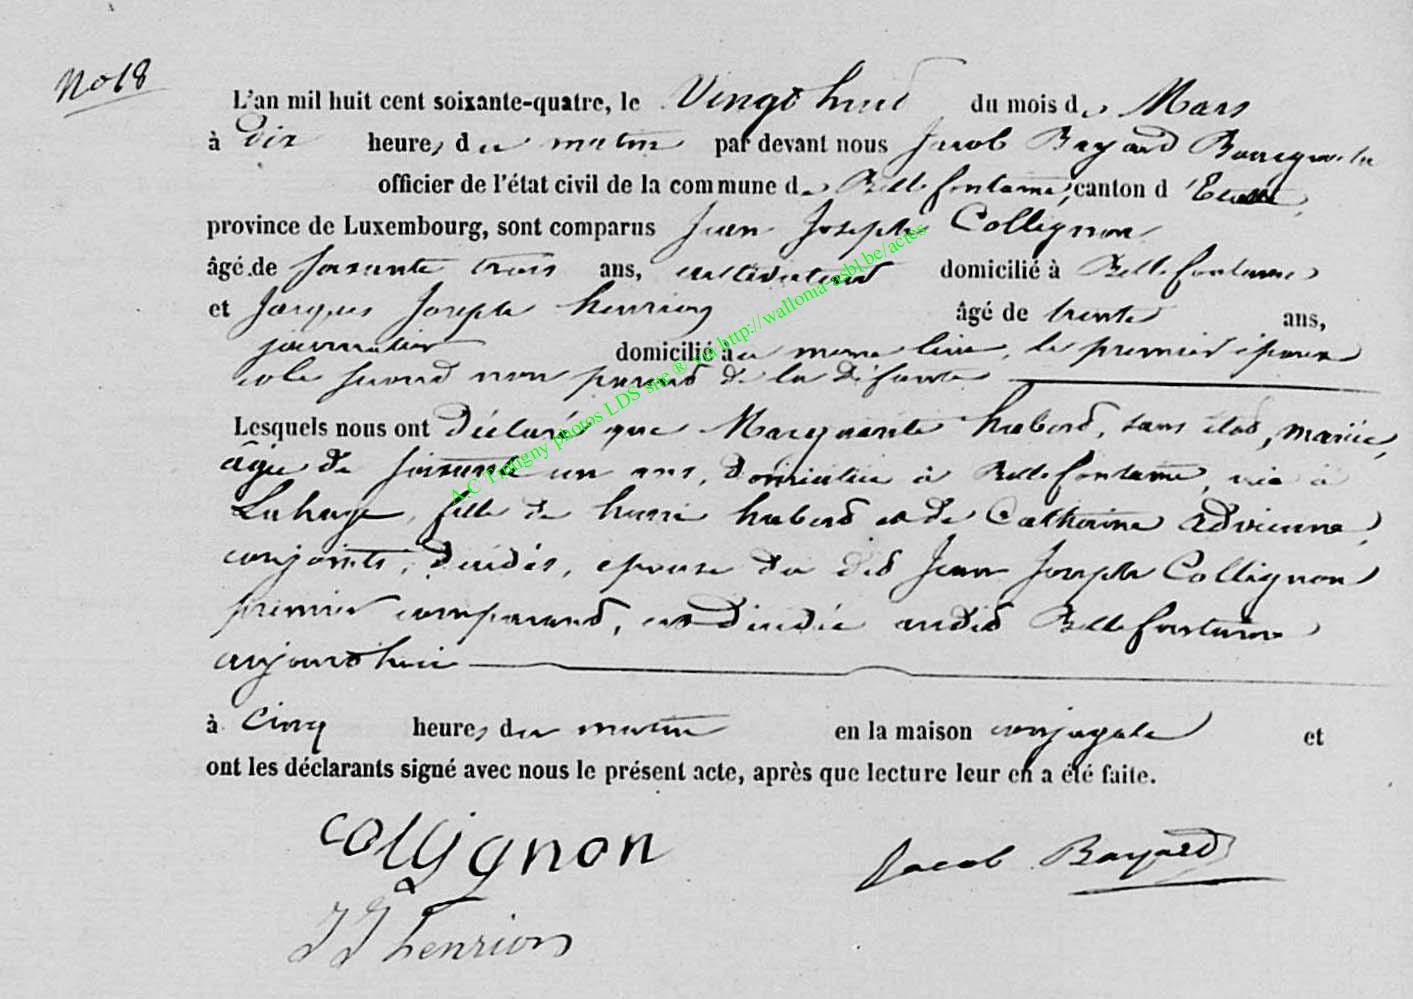 No 18
L'an mil huit cent soixante-quatre, le Vingt huit du mois de Mars
à dix heures du matin par devant nous Jacob Bayard Bourgmestre
officier de l'état civil de la commune de Bellefontaine, canton d'Etalle,
province de Luxembourg, sont comparus Jean Joseph Collignon
âgé de soixante trois ans, cultivateur domicilié à Bellefontaine
et Jacques Joseph henrion âgé de trente ans,
journalier domicilié au meme lieu, le premier époux
et le second non parent de la défunte
Lesquels nous ont déclaré que Marguerite hubert, sans état, mariée,
âgée de soixante un ans, domiciliée à Bellefontaine, née à
Lahage, fille de henri hubert et de Catherine Adrienne,
conjoints, décédés, epouse du dit Jean Joseph Collignon
premier comparant, est décédée audit Bellefontaine
aujourd'hui
à Cinq heures du matin en la maison conjugale et
ont les déclarants signé avec nous le présent acte, après que lecture leur en a été faite.
Collignon
Jacob Bayard
JJ henrion
A.C Tintigny photos LDS site ® via http://wallonia-asbl.be/actes